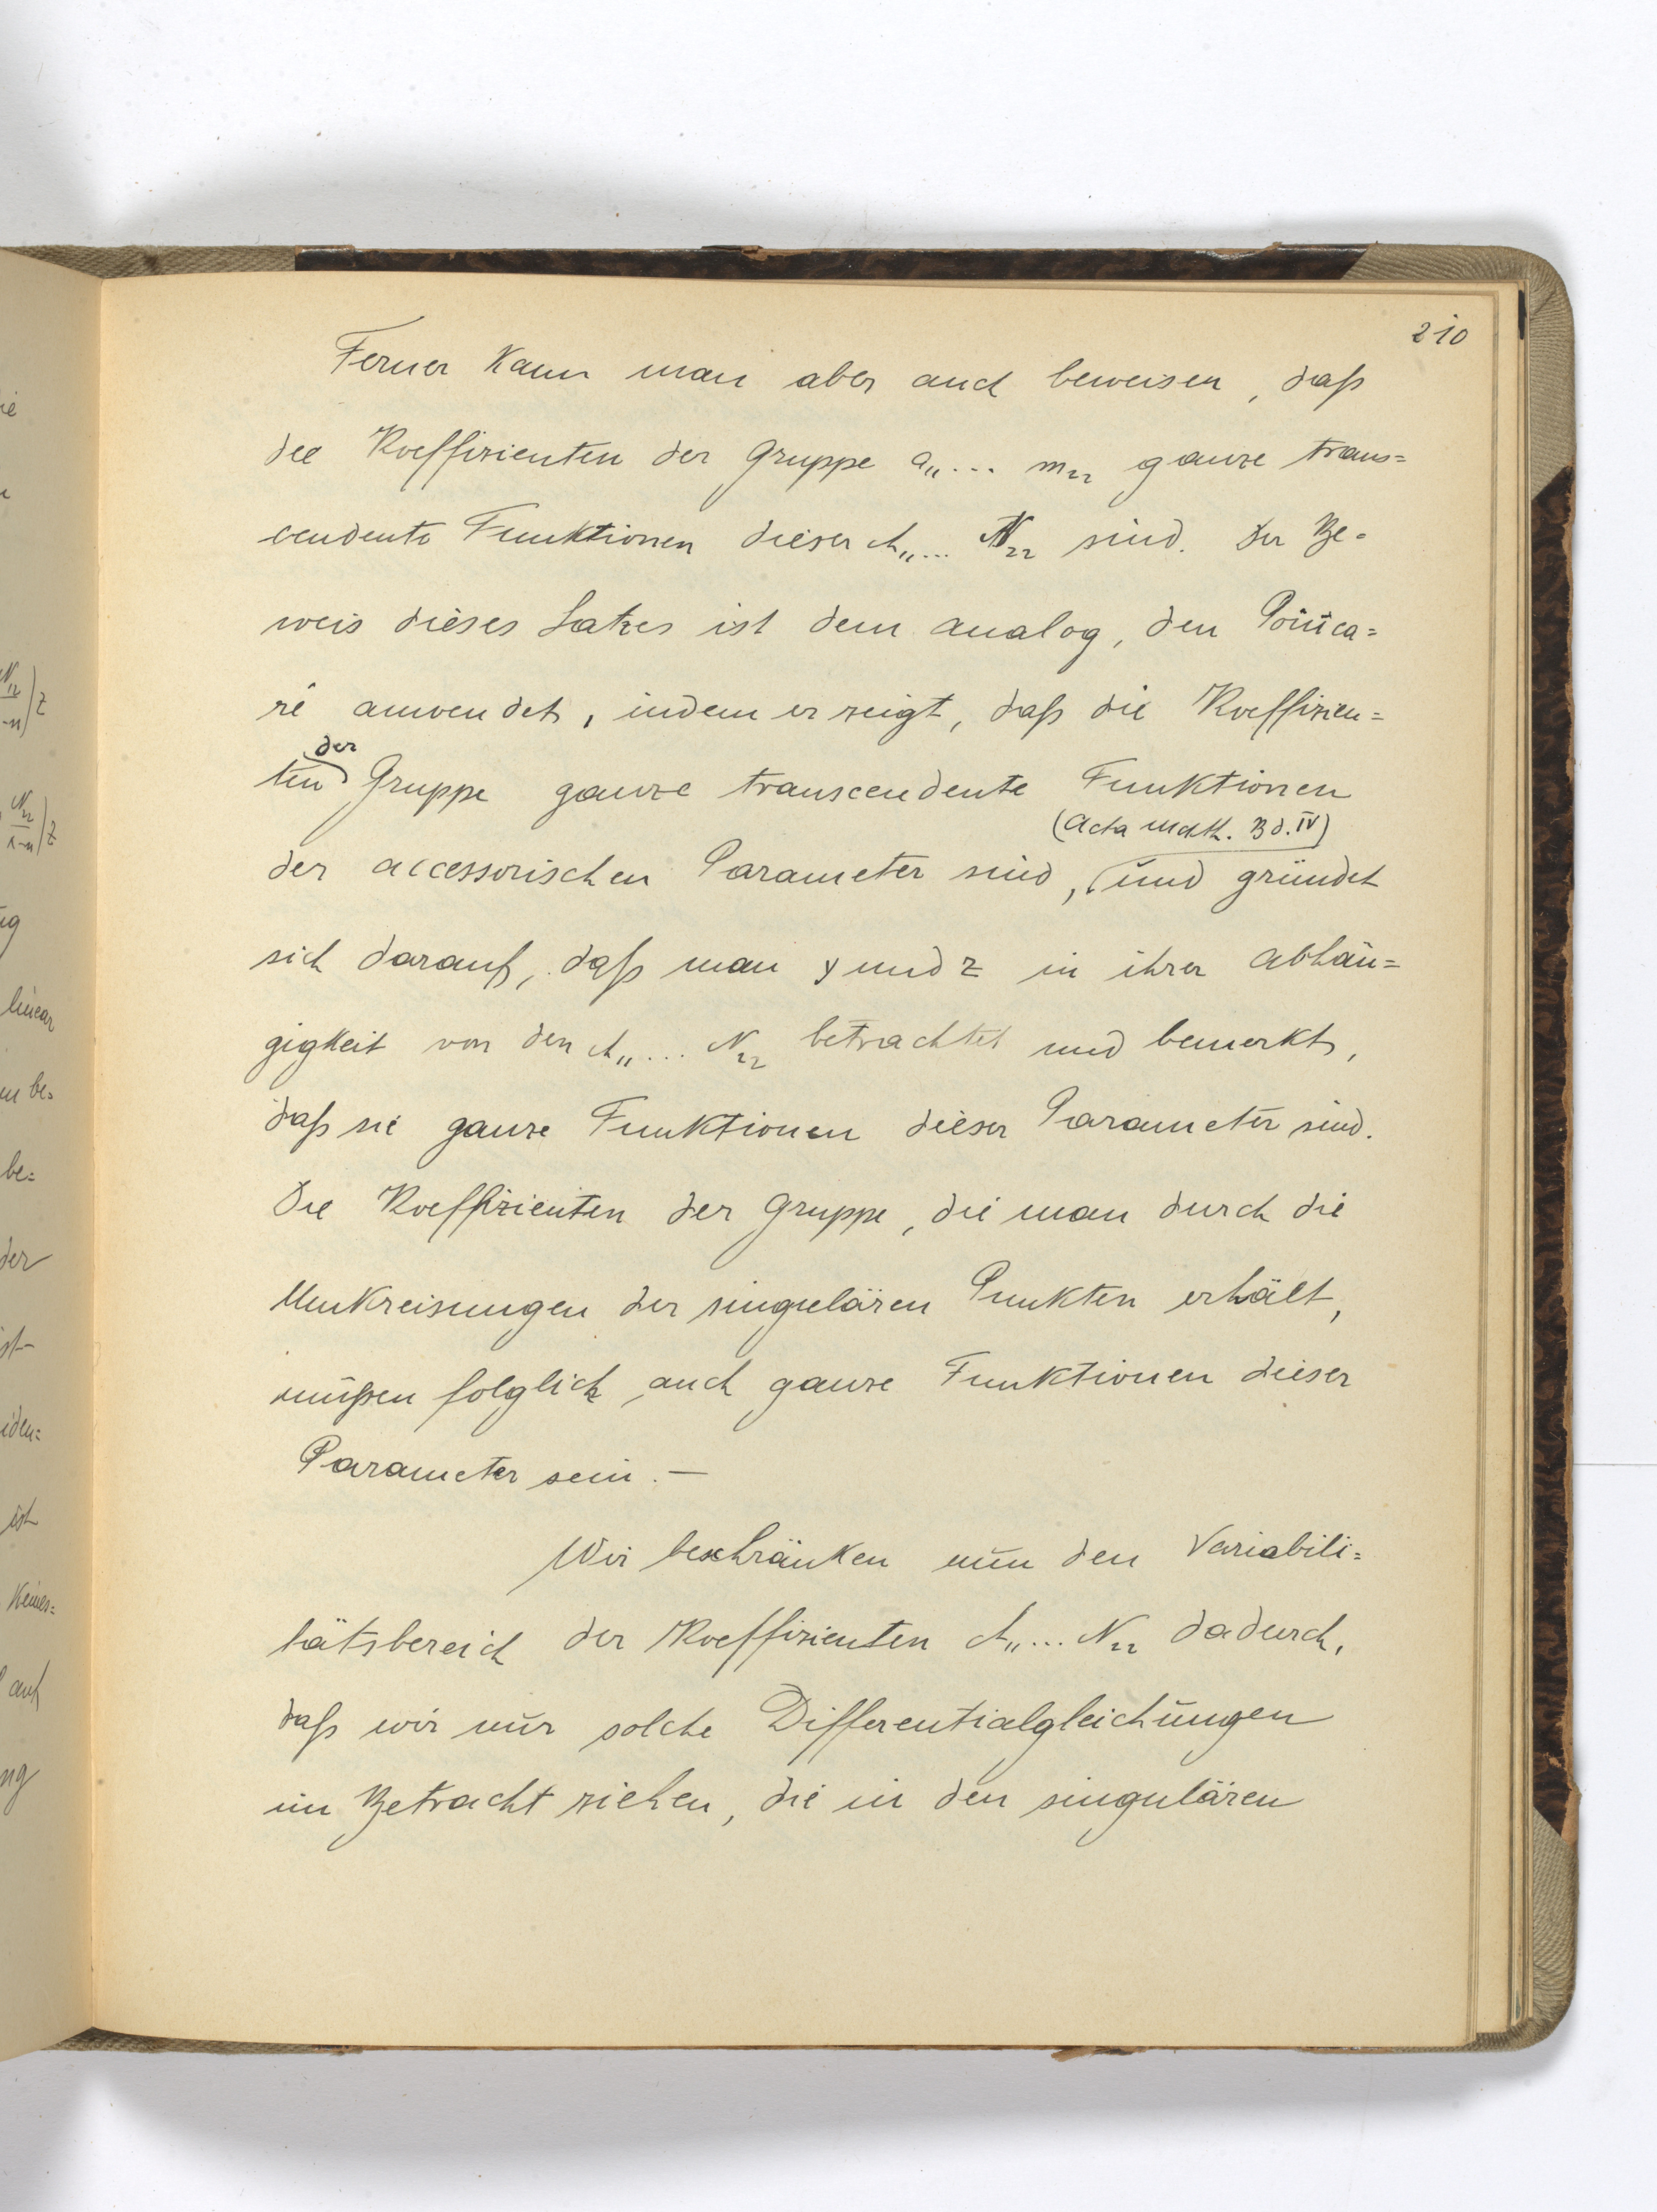 210
Ferner kann man aber auch beweisen, daß
die Koeffizienten der Gruppe a₁₁... m₂₂ ganze trans=
cendente Funktionen dieser A₁₁... N₂₂ sind. Der Be=
weis dieses Satzes ist dem analog, den Poinca=
ré anwendet, indem er zeigt, daß die Koeffizien=
der
ten Gruppe ganze transcendente Funktionen
(Acta math. Bd. IV)
der accessorischen Parameter sind, und gründet
sich darauf, daß man y und z in ihrer Abhän=
gigkeit von den A₁₁... N₂₂ betrachtet und bemerkt,
daß sie ganze Funktionen dieser Parameter sind.
Die Koeffizienten der Gruppe, die man durch die
Umkreisungen der singulären Punkten erhält,
müßen folglich auch ganze Funktionen dieser
Parameter sein. —
Wir beschränken nun den Variabili=
tätsbereich der Koeffizienten A₁₁... N₂₂ dadurch,
daß wir nur solche Differentialgleichungen
in Betracht ziehen, die in den singulären